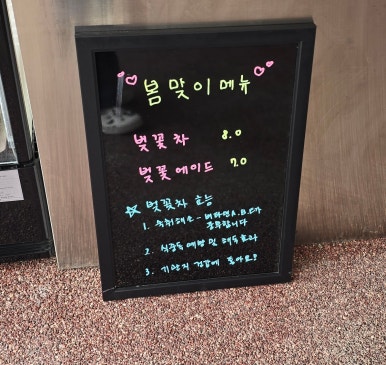 봄맞이메뉴
벚꽃차 8.0
벚꽃에이드 7.0
☆ 벚꽃차 효능
1. 숙취해소 - 비타민A.B.C가
풍부합니다
2. 식중독 예방 및 해독효과
3. 기관지 건강에 좋아요?